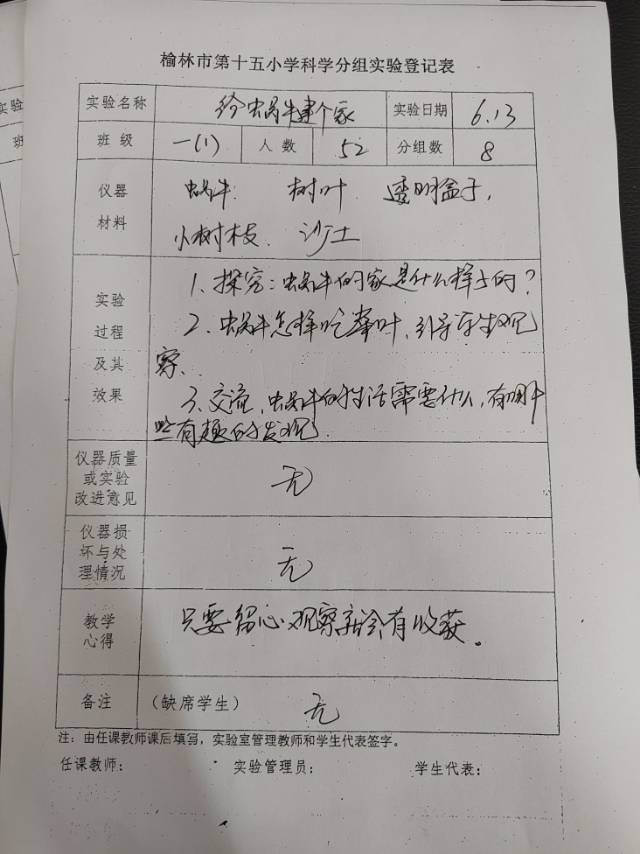 榆林市第十五小学科学分组实验登记表
实验名称 给蜗牛建个家 实验日期 6.13
班级 一(1) 人数 52 分组数 8
仪器材料 蜗牛. 树叶 透明盒子,
小树枝. 沙土
实验过程及其效果
1. 探究:蜗牛的家是什么样子的?
2. 蜗牛怎样吃菜叶,引导学生观
察.
3. 交流,蜗牛的生活需要什么,有哪
些有趣的发现.
仪器质量或实验改进意见 无
仪器损坏与处理情况 无
教学心得 只要留心观察就会有收获。
备注 (缺席学生) 无
注:由任课教师课后填写,实验室管理教师和学生代表签字。
任课教师: 实验管理员: 学生代表:
实验
班